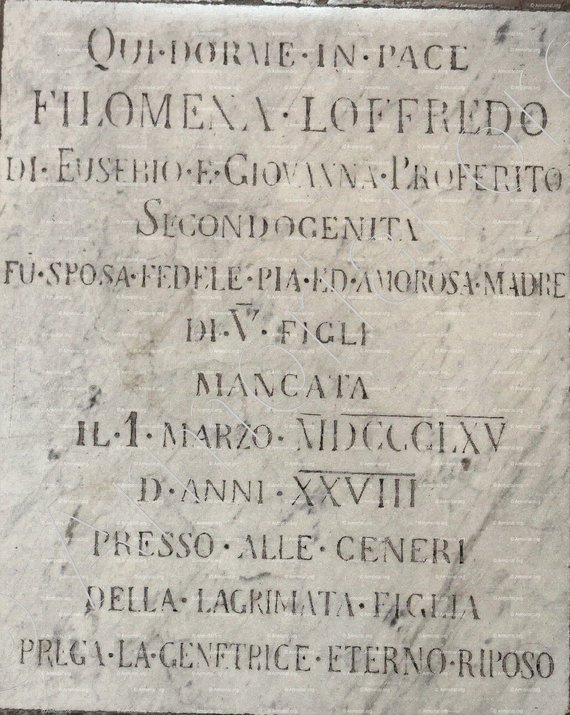 QUI·DORME·IN·PACE
FILOMENA·LOFFREDO
DI·EUSEBIO·E·GIOVANNA·PROFERITO
SECONDOGENITA
FU·SPOSA·FEDELE·PIA·ED·AMOROSA·MADRE
DI·V·FIGLI
MANCATA
IL·1·MARZO·MDCCCLXV
D·ANNI·XXVIII
PRESSO·ALLE·CENERI
DELLA·LAGRIMATA·FIGLIA
PREGA·LA·GENETRICE·ETERNO·RIPOSO